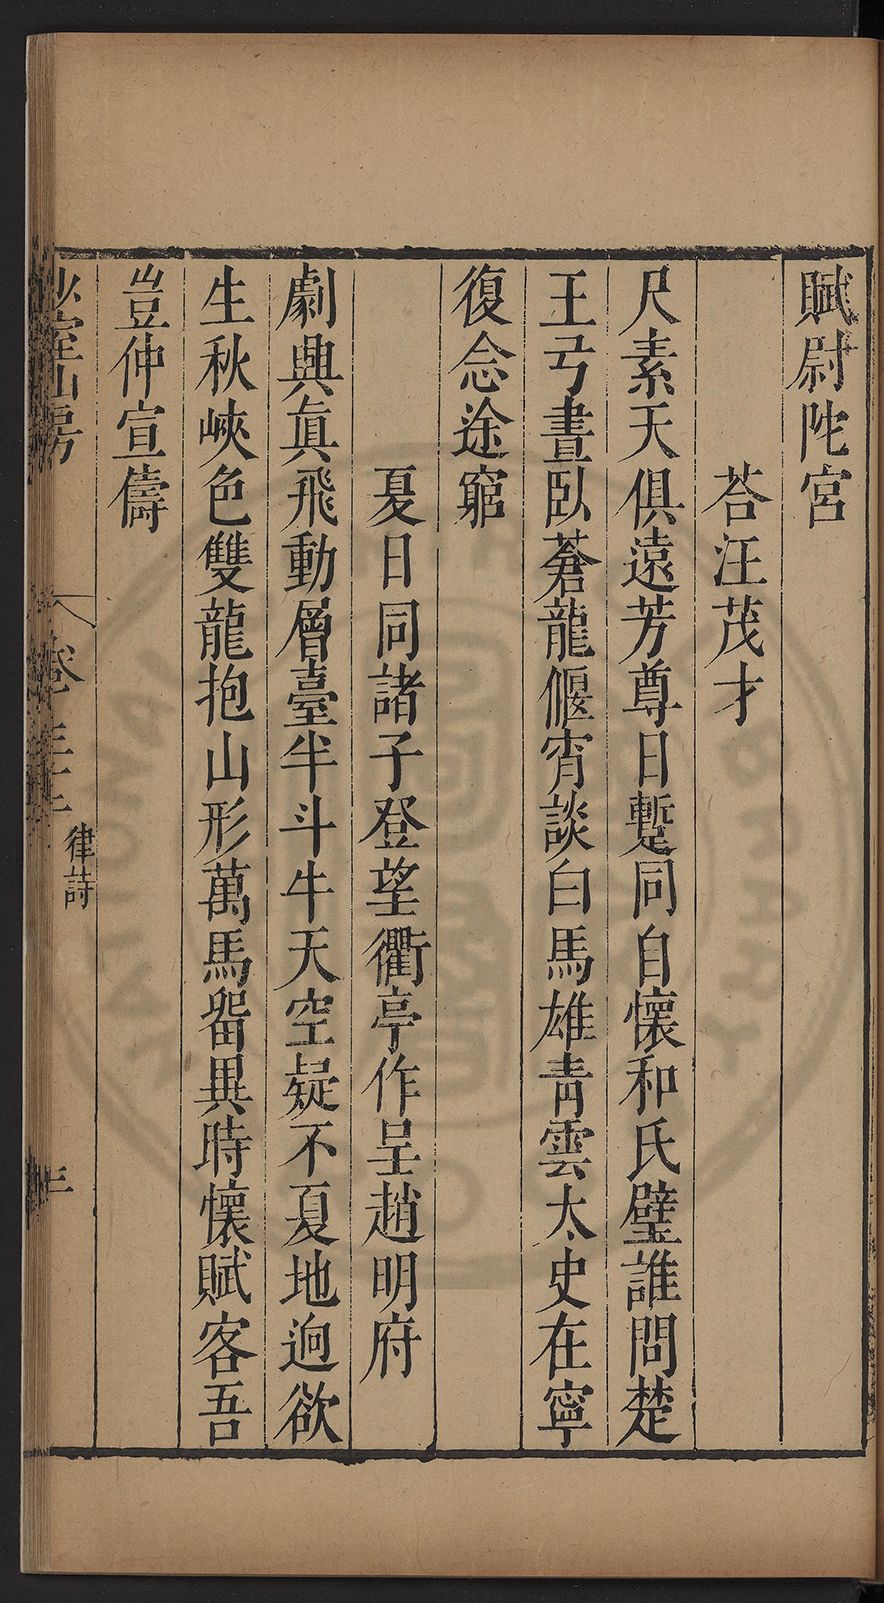 賦尉陀宮
荅汪茂才
尺素天俱遠芳尊日蹔同自懷和氏璧誰問楚
王弓晝臥蒼龍偃宵談白馬雄青雲太史在寧
復念途窮
夏日同諸子登望衢亭作呈趙明府
劇興眞飛動層臺半斗牛天空疑不夏地逈欲
生秋峽色雙龍抱山形萬馬畱異時懷賦客吾
豈仲宣儔
少室山房
卷
律詩
三